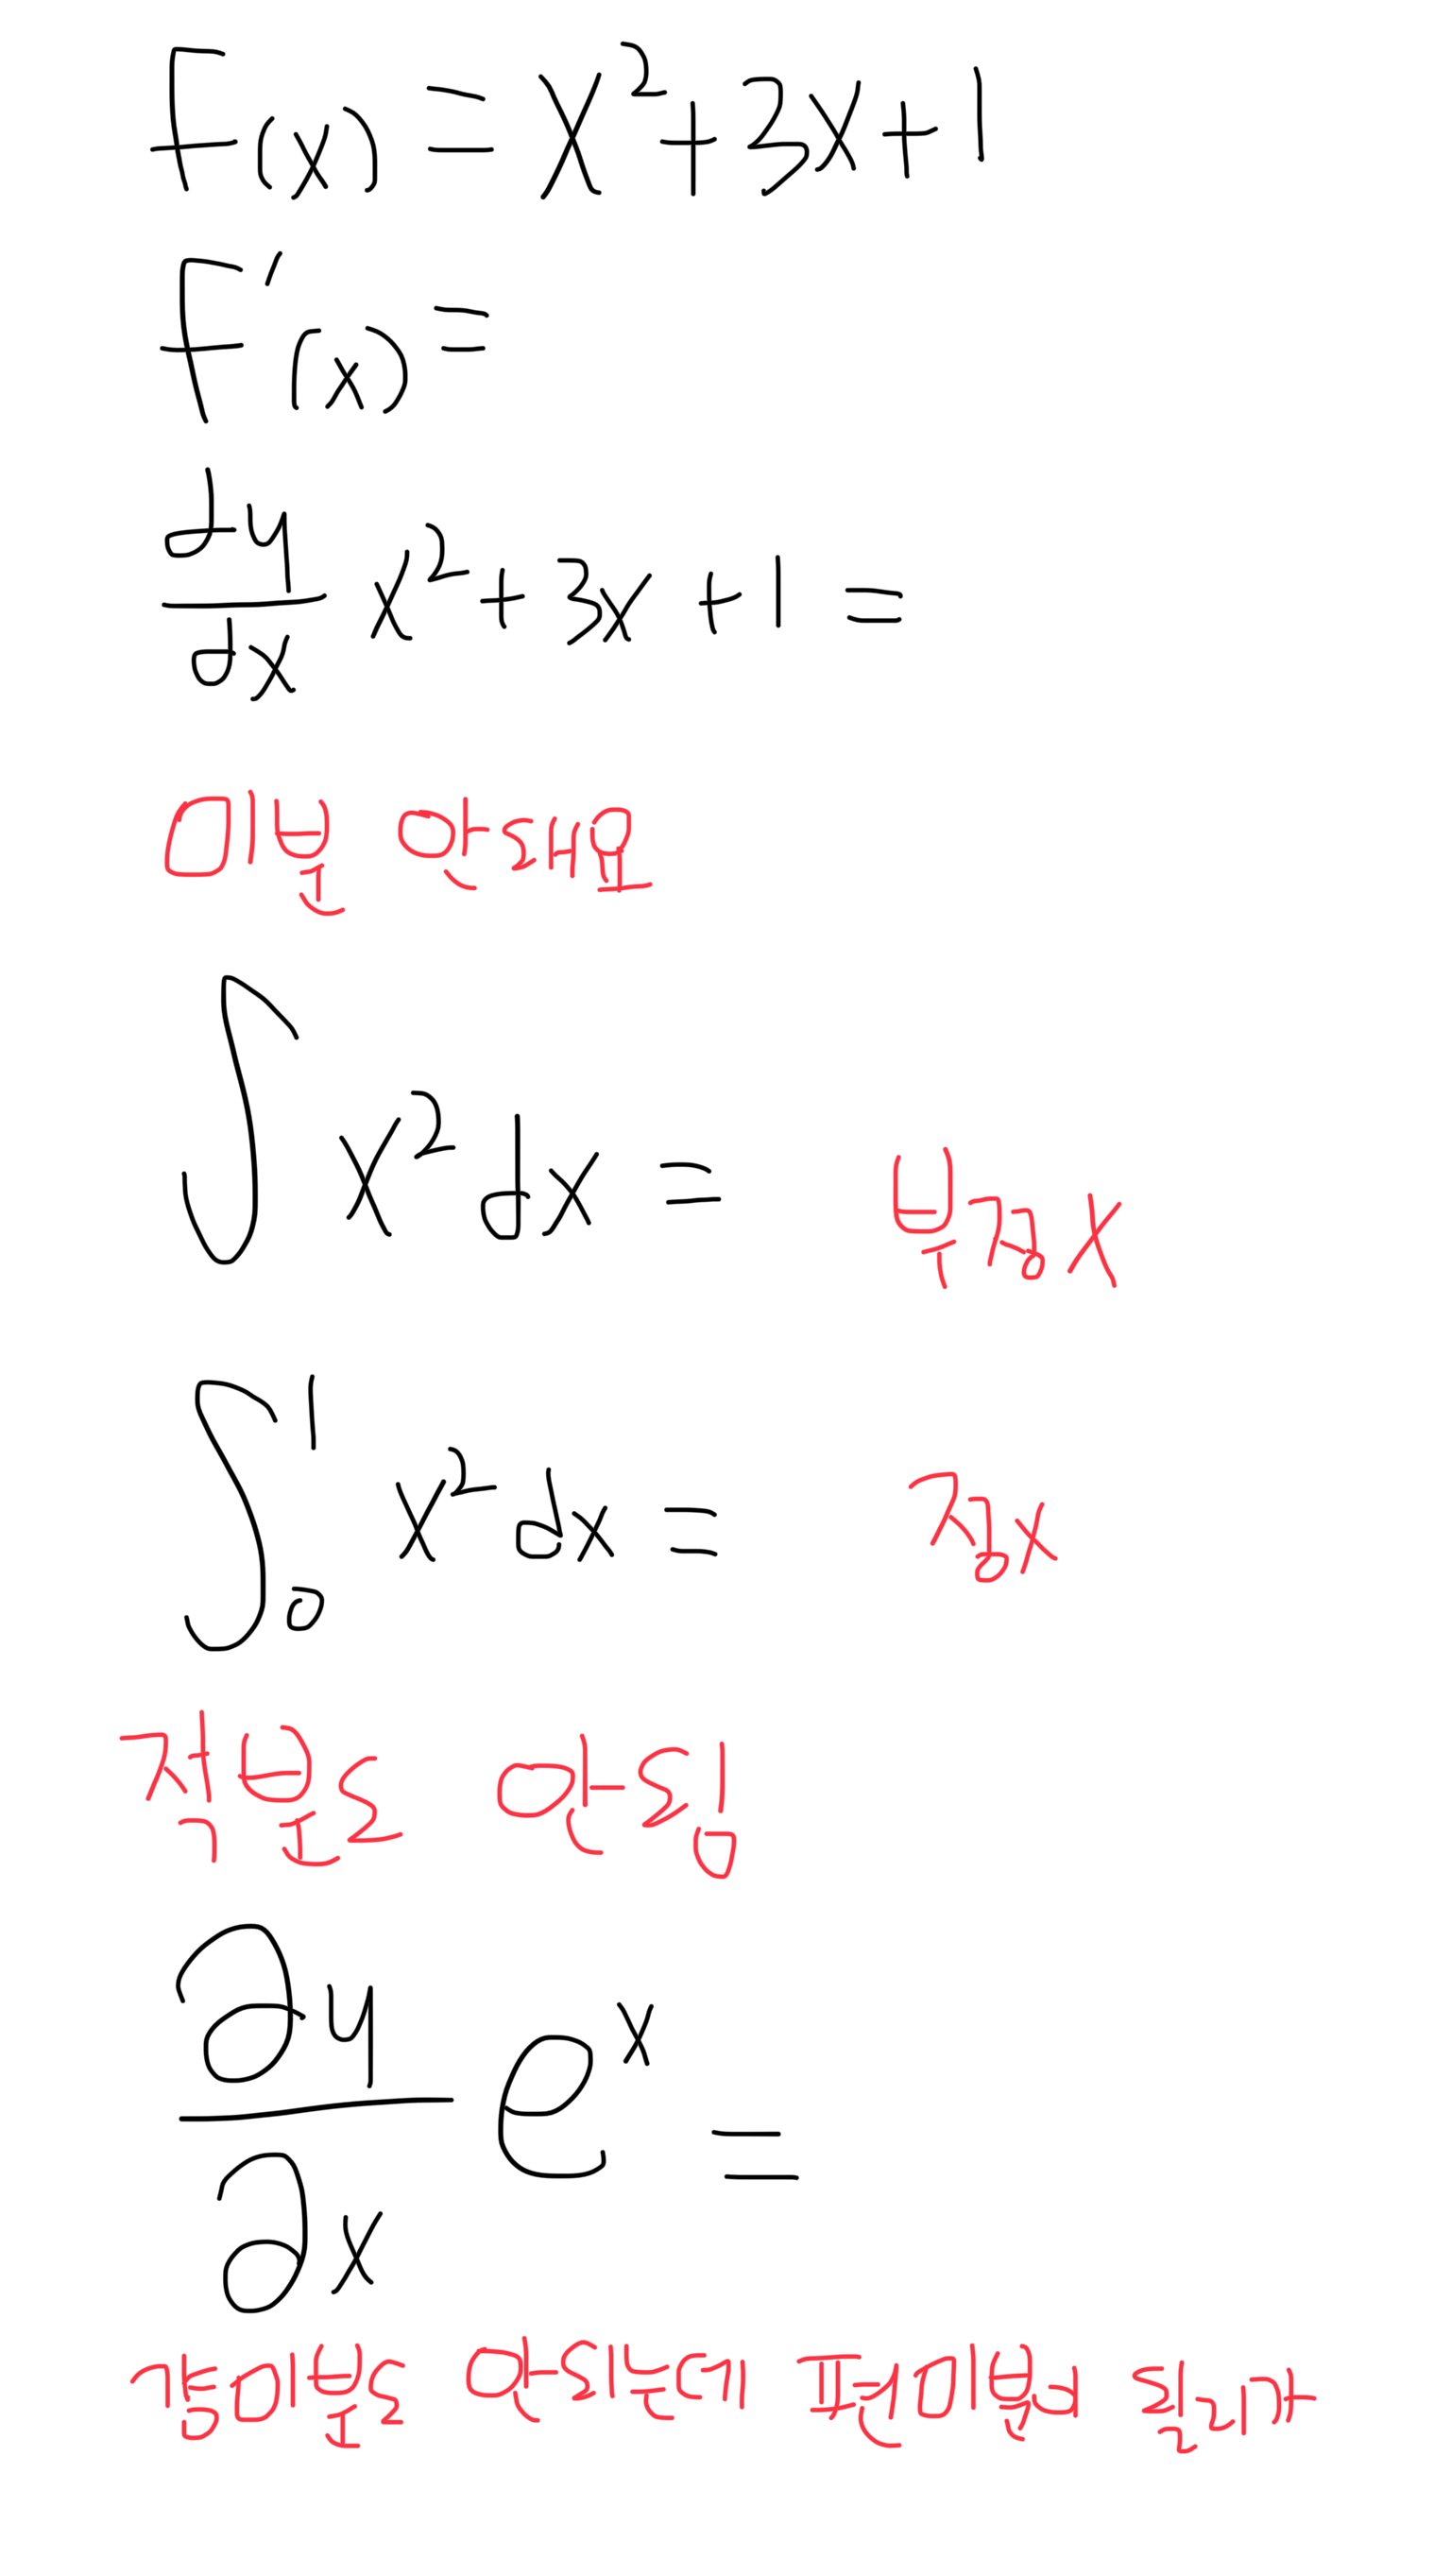 F(x) = x² + 3x + 1
F'(x) =
dy/dx x² + 3x + 1 =
미분 안돼요
∫ x² dx = 부정x
∫₀¹ x² dx = 정x
적분도 안됨
∂y/∂x eˣ =
걍미분도 안되는데 편미분이 될리가